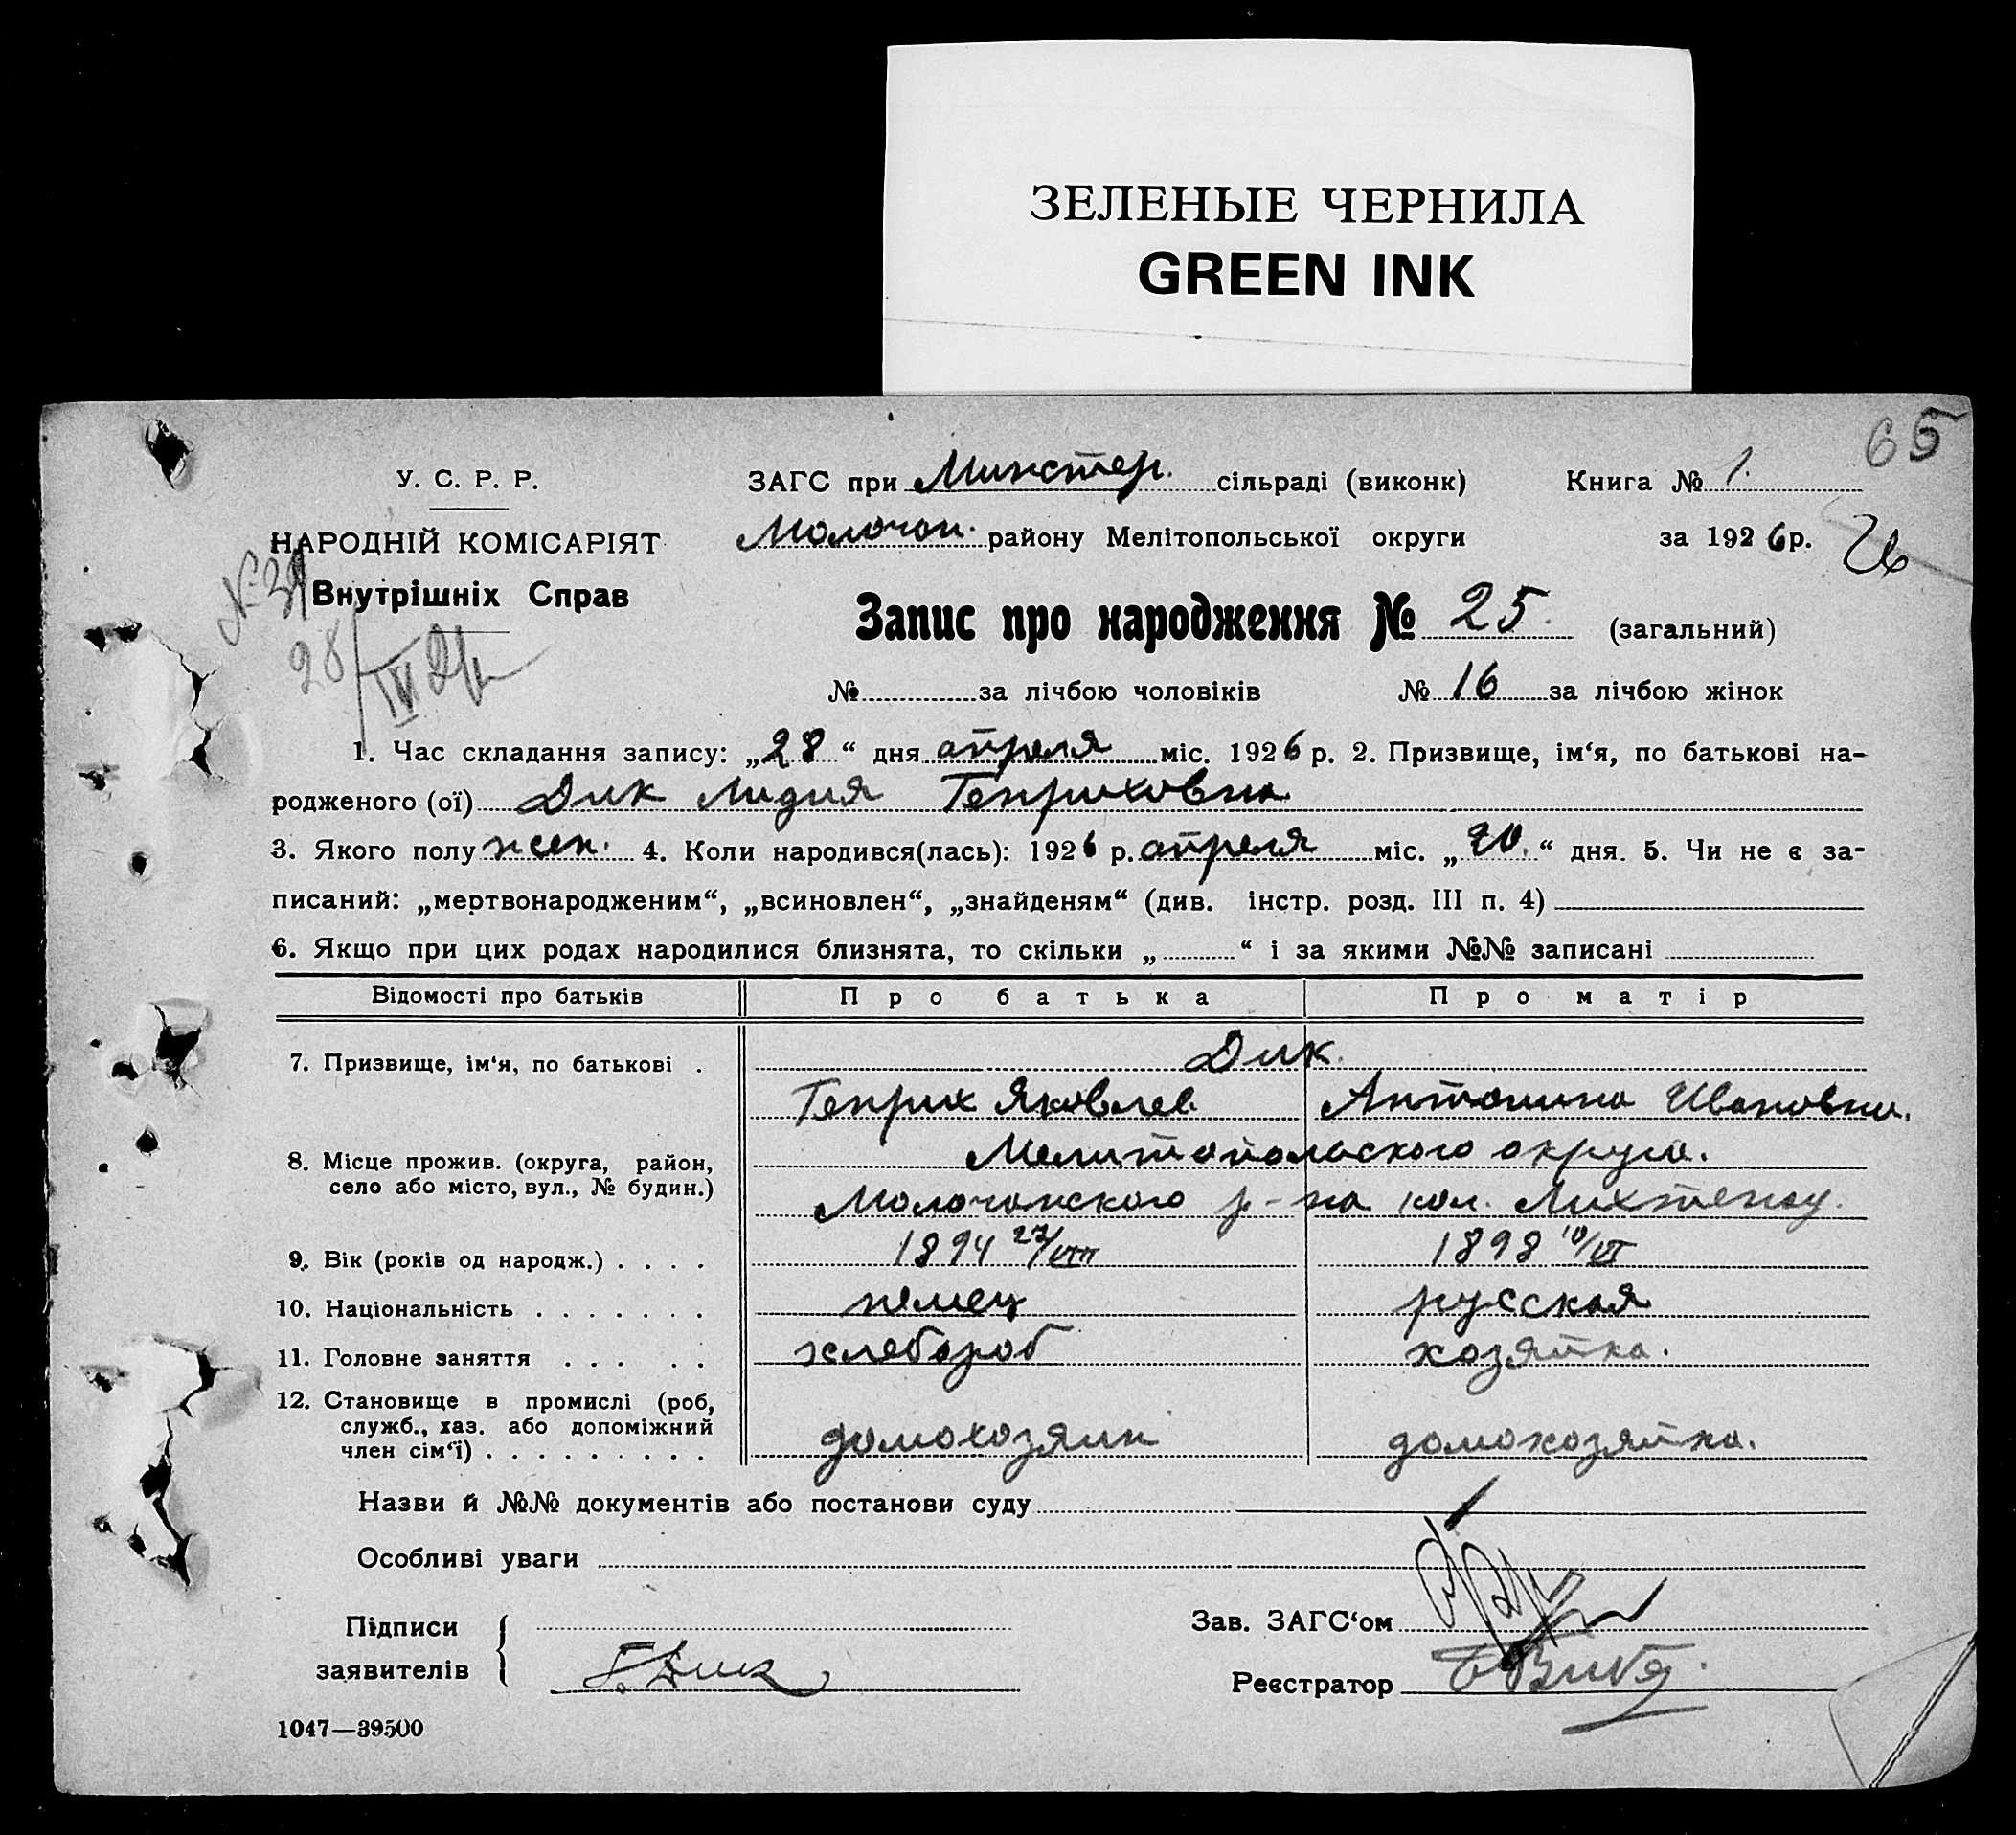 ЗЕЛЕНЫЕ ЧЕРНИЛА
GREEN INK
65
У. С. Р. Р.
НАРОДНІЙ КОМІСАРІЯТ
Внутрішніх Справ
№ 39
28/IV 26
ЗАГС при Минстер. сільраді (виконк) Книга № 1.
Молочан. району Мелітопольської округи за 1926 р.
26
Запис про народження № 25. (загальний)
№ за лічбою чоловіків № 16 за лічбою жінок
1. Час складання запису: „28“ дня апреля міс. 1926 р. 2. Призвище, ім‘я, по батькові на-
родженого (ої) Дик Лидия Генриховна
3. Якого полу жен. 4. Коли народився(лась): 1926 р. апреля міс. „20.“ дня. 5. Чи не є за-
писаний: „мертвонародженим“, „всиновлен“, „знайденям“ (див. інстр. розд. III п. 4)
6. Якщо при цих родах народилися близнята, то скільки „ “ і за якими №№ записані
Відомості про батьків Про батька Про матір
7. Призвище, ім‘я, по батькові . Дик.
Генрих Яковлев. Антонина Ивановна.
8. Місце прожив. (округа, район, село або місто, вул., № будин.) Мелитопольского округа.
Молочанского р-на кол. Лихтенау.
9. Вік (років од народж.) . . . . 1894 27/VIII 1898 10/VI
10. Національність . . . . . . . немец русская
11. Головне заняття . . . . . хлебороб хозяйка.
12. Становище в промислі (роб,
служб., хаз. або допоміжний
член сім‘ї) . . . . . . . . . домохозяин домохозяйка.
Назви й №№ документів або постанови суду
Особливі уваги
Підписи
заявителів Г. Дик
Зав. ЗАГС‘ом
Реєстратор
1047—39500